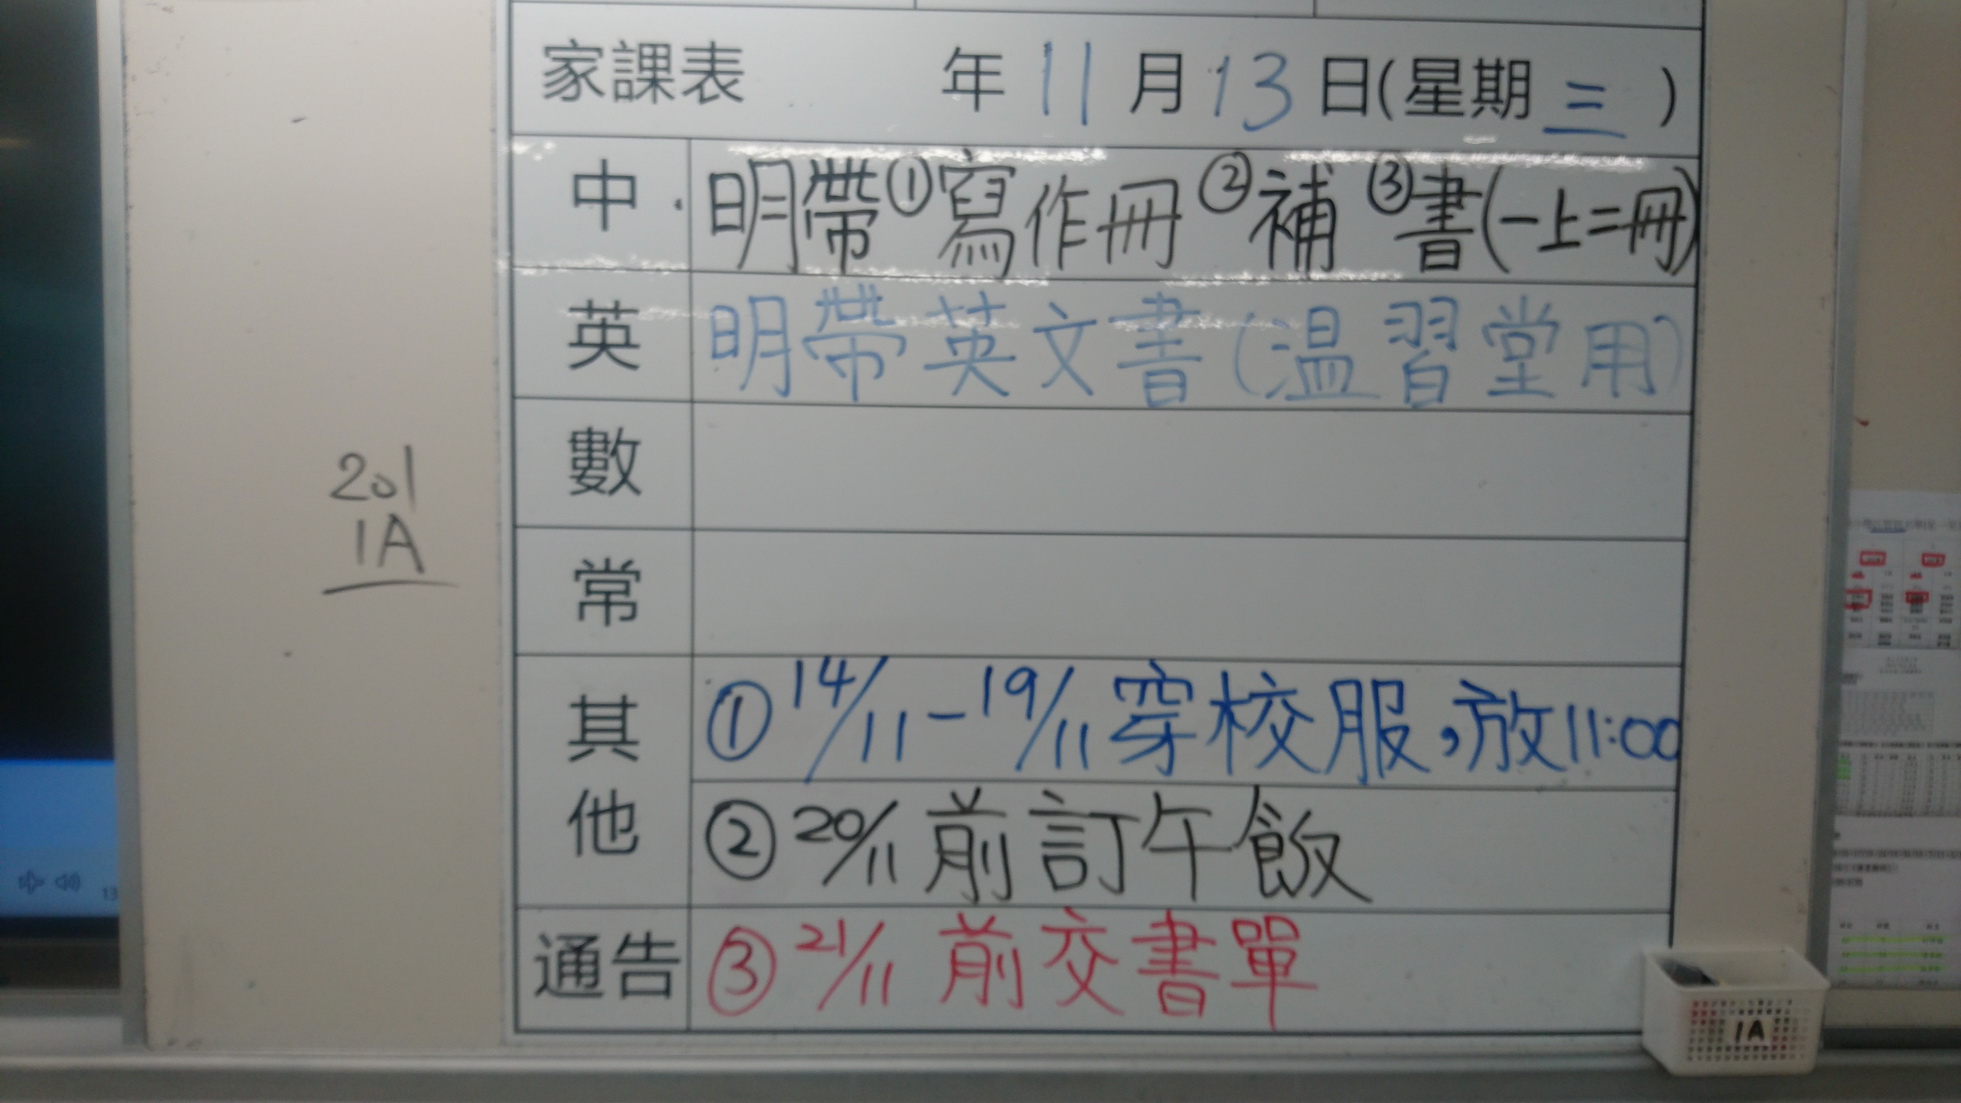 家課表 年 11 月 13 日(星期 三 )
中 明帶①寫作冊 ②補 ③書(一上二冊)
英 明帶英文書(温習堂用)
數
常
其他 ①14/11-19/11穿校服,放11:00
②20/11前訂午飯
通告 ③21/11前交書單
201
1A
1A
13